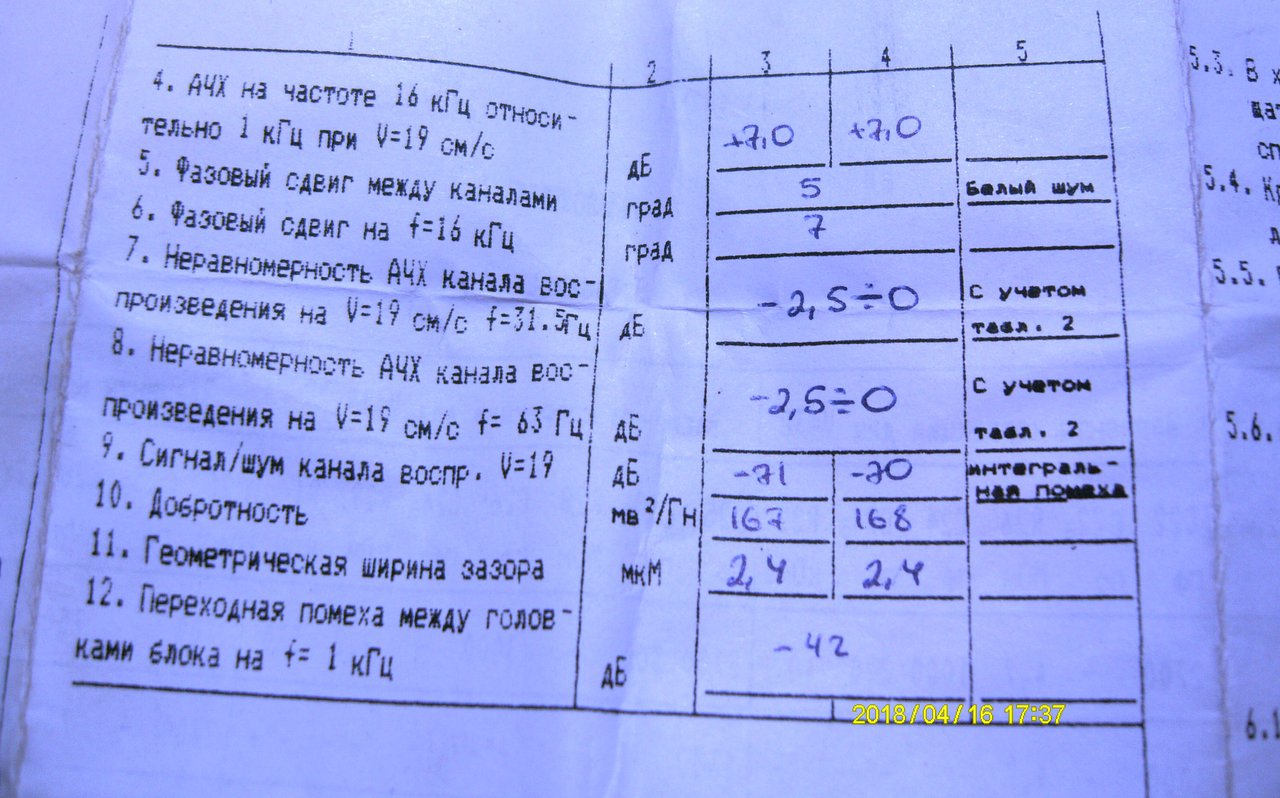 1 2 3 4 5
4. АЧХ на частоте 16 кГц относи-
тельно 1 кГц при V=19 см/с дБ +7,0 +7,0
5. Фазовый сдвиг между каналами град 5 Белый шум
6. Фазовый сдвиг на f=16 кГц град 7
7. Неравномерность АЧХ канала вос- С учетом
произведения на V=19 см/с f=31.5Гц дБ -2,5÷0 табл. 2
8. Неравномерность АЧХ канала вос- С учетом
произведения на V=19 см/с f= 63 Гц дБ -2,5÷0 табл. 2
9. Сигнал/шум канала воспр. V=19 дБ -71 -70 интеграль-
ная помеха
10. Добротность мв²/Гн 167 168
11. Геометрическая ширина зазора мкМ 2,4 2,4
12. Переходная помеха между голов-
ками блока на f= 1 кГц дБ -42
5.3. В
5.4.
5.5.
5.6.
6.1
2018/04/16 17:37